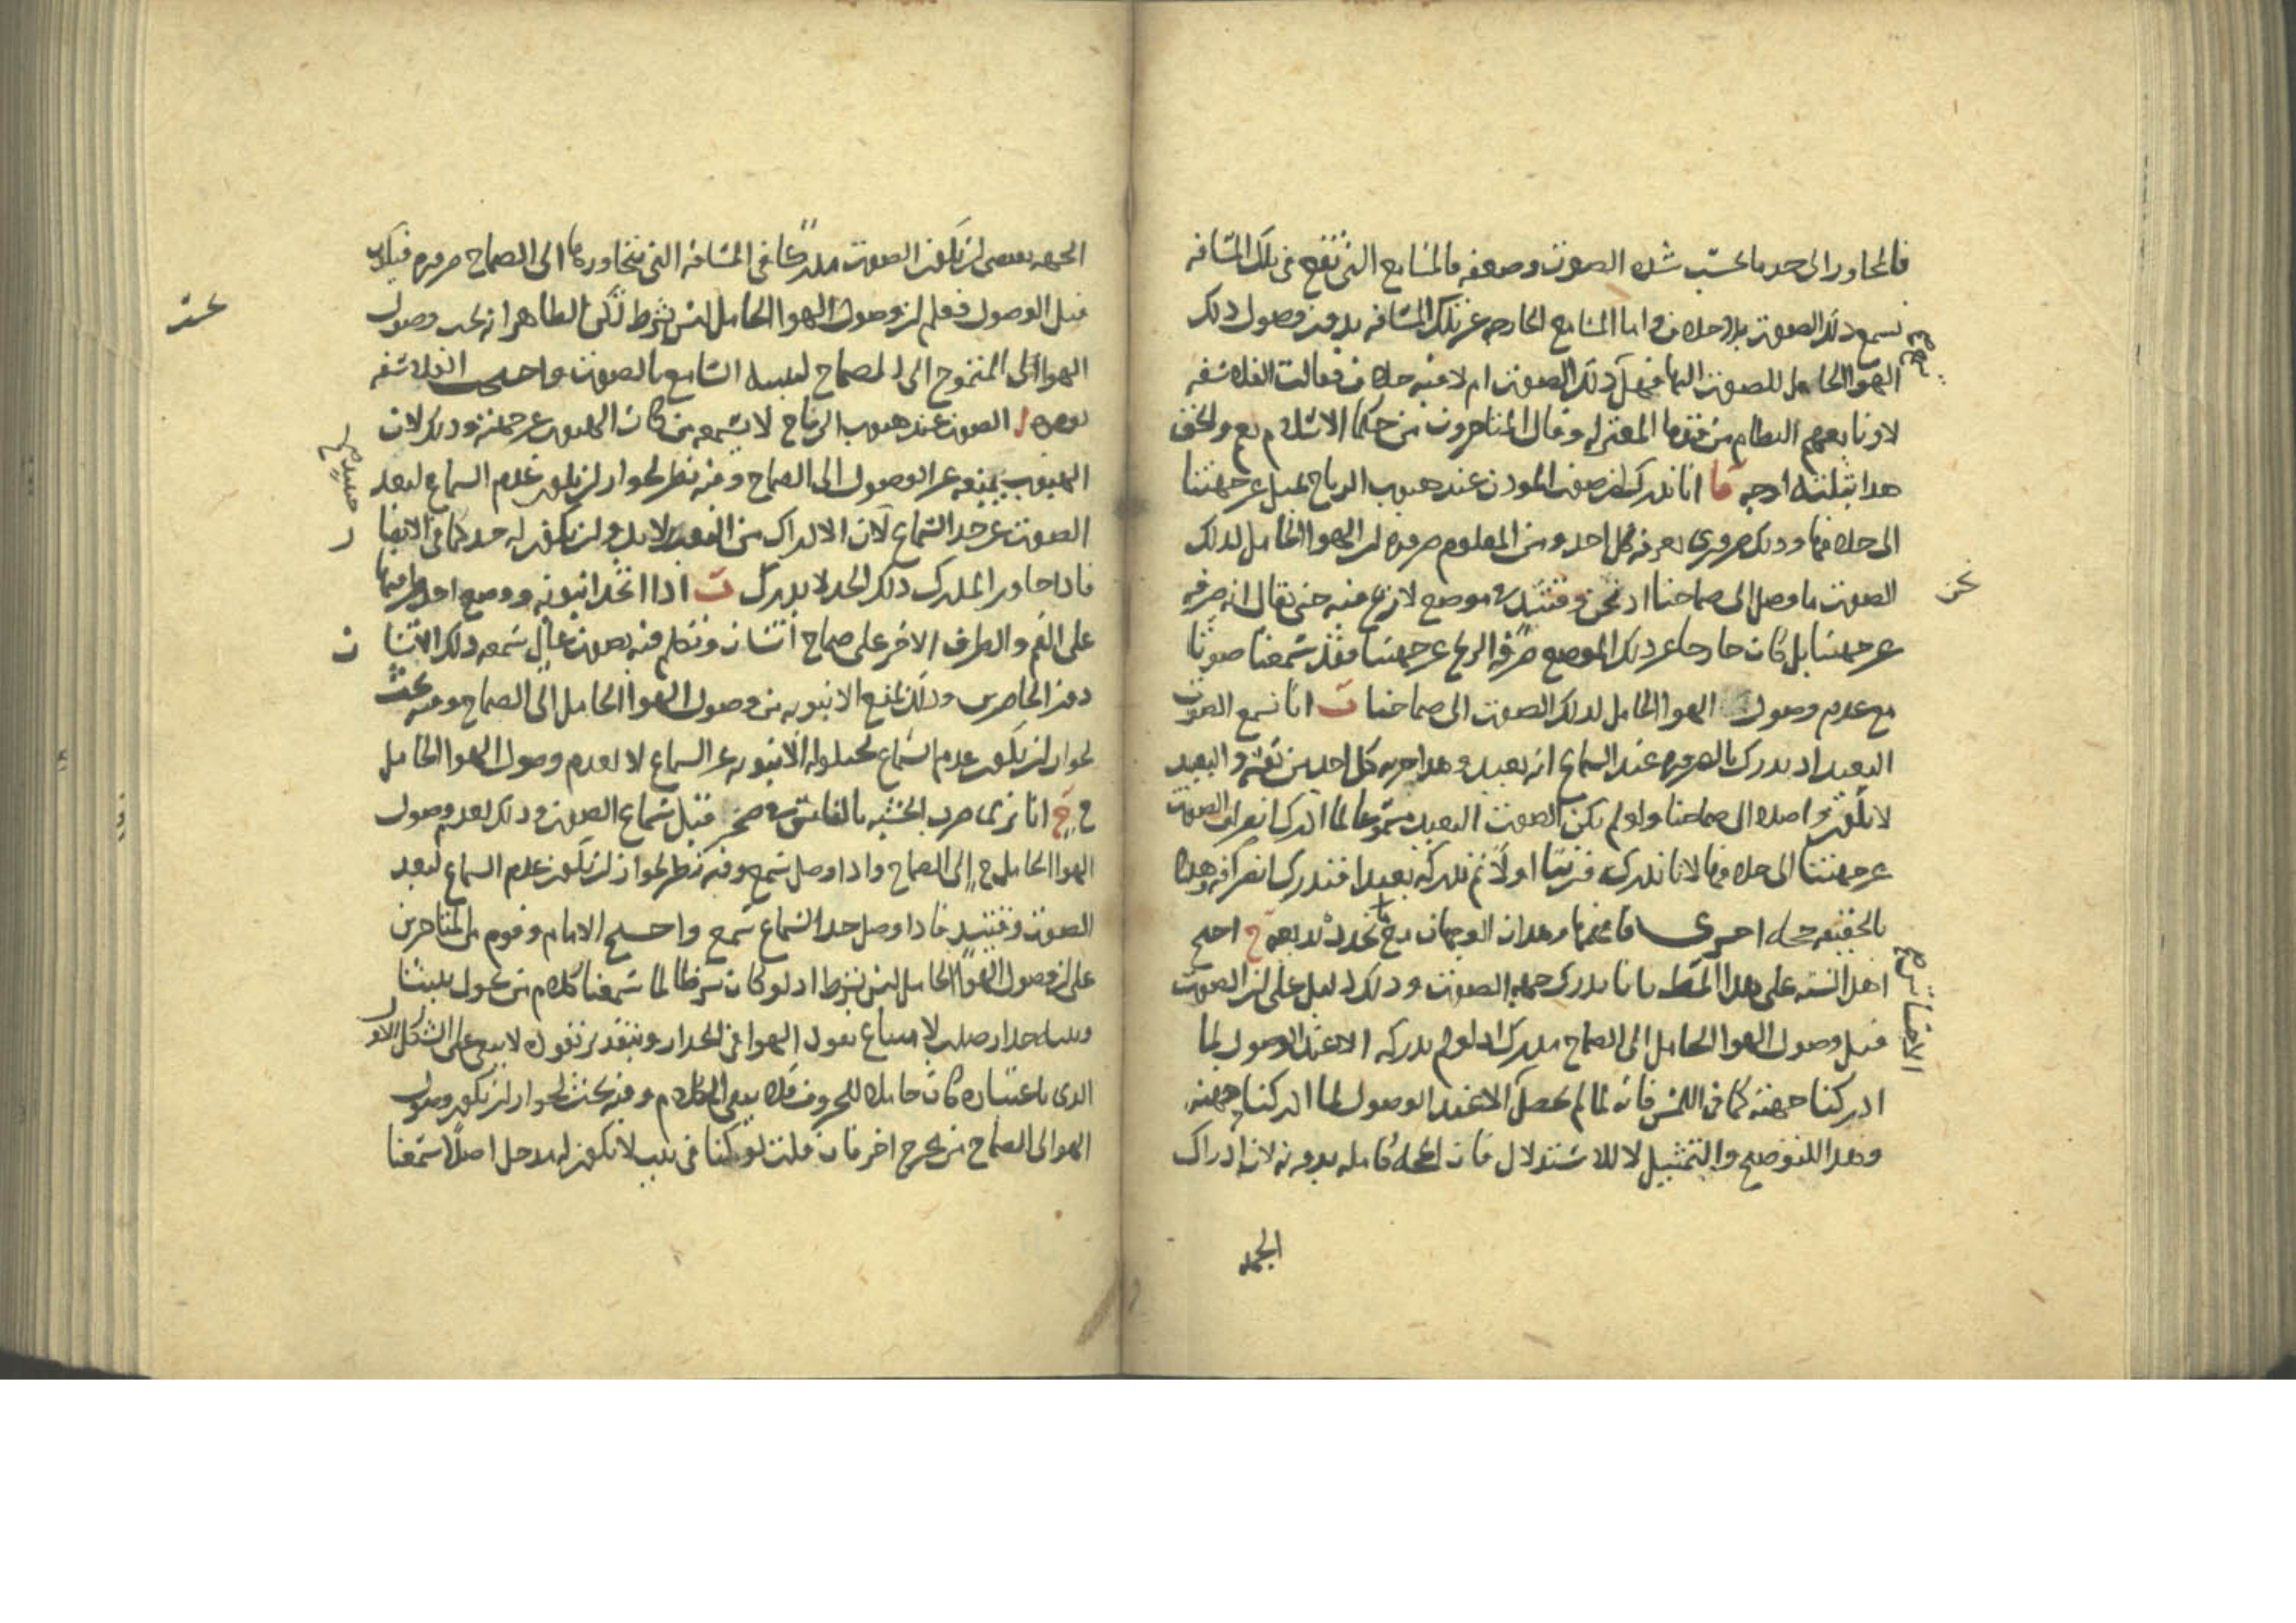 فالمحاور الى حد ما بحسب شده الصوت وضعفه فالمسامع التى تقع فى تلك المسافه
تسمع ذلك الصوت بلا خلاف واما المسامع الخارجه عن تلك المسافه بدون وصول ذلك
الهوا الحامل للصوت اليها فهل ذلك الصوت ام لا فيه خلاف فقالت الفلاسفه
لا وتابعهم النظام من قدما المعتزله وقال المتاخرون من حكما الاسلام نعم ولنحقق
هدا بثلثه اوجه آ انا ندرك ان صوت المودن عند هبوب الرياح يميل عن جهتنا
الى خلافها ودلك ضرورى يعرفه كل احد ومن المعلوم ضروره ان الهوا الحامل لدلك
الصوت ما وصل الى صماخنا اد نحن وقتئد فى موضع لا ريح فيه حتى يقال انه صرفه
عن جهتنا بل كان خارجا عن دلك الموضع صرفه الريح عن جهتنا فقد سمعنا صوتا
مع عدم وصول الهوا الحامل لدلك الصوت الى صماخنا ب انا نسمع الصوت
البعيد اد ندرك بالضروره عند السماع انه بعيد وهدا يجربه كل احد من نفسه والبعيد
لا يكون واصلا الى صماخنا ولو لم يكن الصوت البعيد مسموعا لما ادركنا انحراف الصوت
عن جهتنا الى خلافها لانا ندركه قريبا اولا ثم ندركه بعيدا فندرك انحرافه وهدا
بالحقيقه حجه اخرى فافهمها وهدان الوجهان مع تحرير بديعه ج احتج
اهل السنه على هدا المط بانا ندرك جهه الصوت ودلك دليل على ان الصوت
قبل وصول الهوا الحامل الى الصماخ مدرك اد لو لم ندركه الا عند الوصول لما
ادركنا جهته كما فى اللمس فانه لما لم يحصل الا عند الوصول لما ادركنا جهته
وهدا للتوضيح والتمثيل لا للاستدلال فان الحجه كامله بدونه لان ادراك
الجهه
نحن
الجهه يقتضى ان يكون الصوت مدركا فى المسافه التى يتجاورها الى الصماخ ضروره فيكون
قبل الوصول فعلم ان وصول الهوا الحامل ليس بشرط لكن الظاهر انه يجب وصول
الهوا المتموج الى الصماخ لتنبيه السامع بالصوت واحتجت الفلاسفه
بوجوه ا الصوت عند هبوب الرياح لا يسمعه من كان الهبوب عن جهته ودلك لان
الهبوب يمنعه عن الوصول الى الصماخ وفيه نظر لجواز ان يكون عدم السماع لبعد
الصوت عن حد السماع لان الادراك من البعد لا بد وان يكون له حد كما فى الابصار
فادا جاور المدرك دلك الحد لا يدرك ب ادا اتخد انبوبه ووضع احد طرفيها
على الفم والطرف الاخر على صماخ انسان وتكلم فيه بصوت عال سمعه دلك الانسان
دون الحاضرين ودلك لمنع الانبوبه من وصول الهوا الحامل الى الصماخ وفيه بحث
لجواز ان يكون عدم السماع لحيلوله الانبوبه عن السماع لا لعدم وصول الهوا الحامل
ج انا نرى ضرب الخشبه بالفاس فى صخر قبل سماع الصوت ودلك لعدم وصول
الهوا الحامل ح الى الصماخ وادا وصل سمع وفيه نظر لجواز ان يكون عدم السماع لبعد
الصوت وقتئد فادا وصل حد السماع سمع واحتج الامام وقوم من المتاخرين
على ان وصول الهوا الحامل ليس بشرط اد لو كان شرطا لما سمعنا كلام من يحول بيننا
وبينه جدار صلب لامتناع نفود الهوا فى الجدار وبتقدير نفوده لا يبقى على الشكل الاول
الدى باعتباره كان حاملا للحروف فلا يبقى الكلام وفيه بحث لجواز ان يكون وصول
الهوا الى الصماخ من مخرج اخر فان قلت لو كنا فى بيت لا يكون له مدخل اصلا سمعنا
بحث